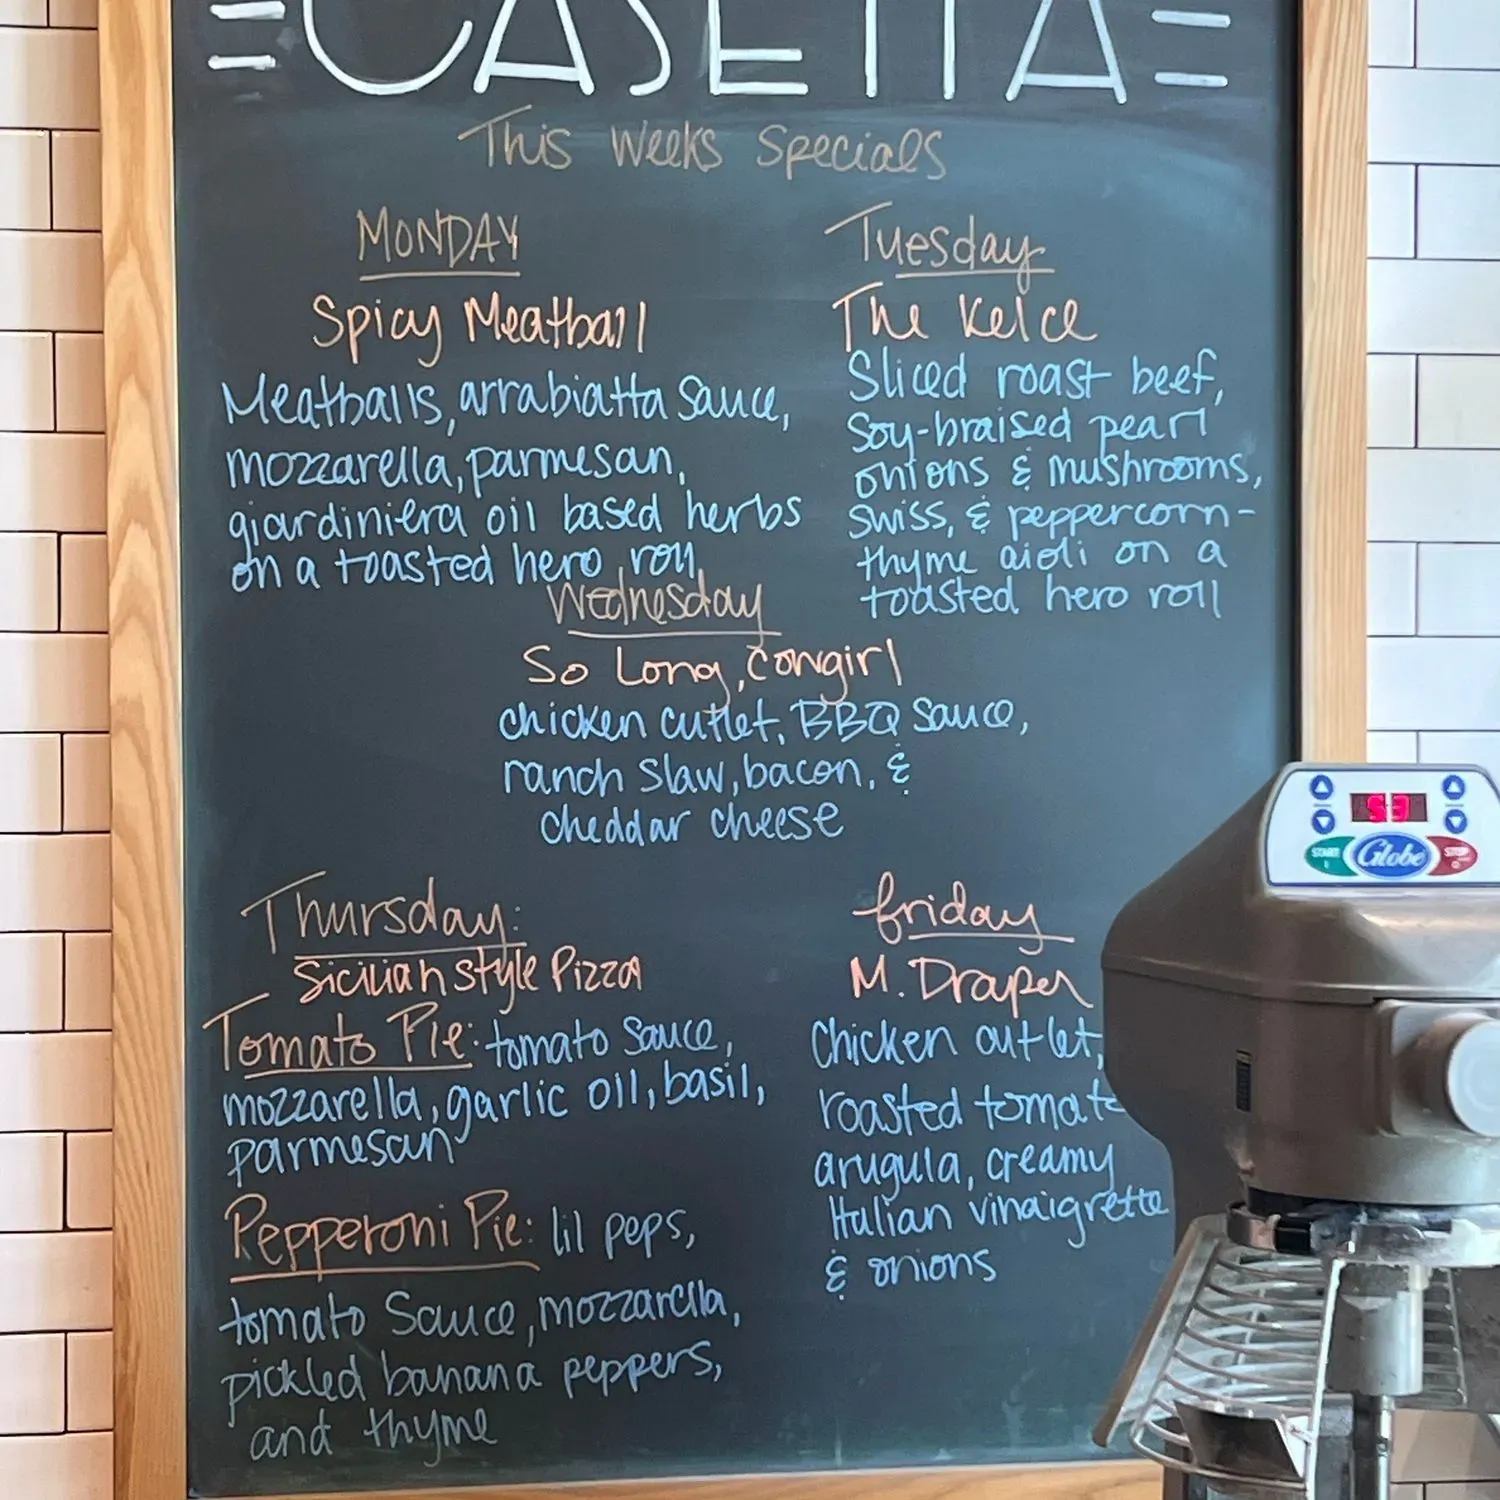 =CASETTA=
This Weeks Specials
MONDAY
Spicy Meatball
Meatballs, arrabiatta Sauce,
mozzarella, parmesan,
giardiniera oil based herbs
on a toasted hero roll
Tuesday
The Kelce
Sliced roast beef,
Soy-braised pearl
onions & mushrooms,
swiss, & peppercorn-
thyme aioli on a
toasted hero roll
Wednesday
So Long, Cowgirl
chicken cutlet, BBQ sauce,
ranch slaw, bacon, &
cheddar cheese
Thursday:
Sicilian style Pizza
Tomato Pie: tomato sauce,
mozzarella, garlic oil, basil,
parmesan
Pepperoni Pie: lil peps,
tomato Sauce, mozzarella,
pickled banana peppers,
and thyme
friday
M. Draper
Chicken cutlet,
roasted tomato
arugula, creamy
Italian vinaigrette
& onions
START
Globe
STOP